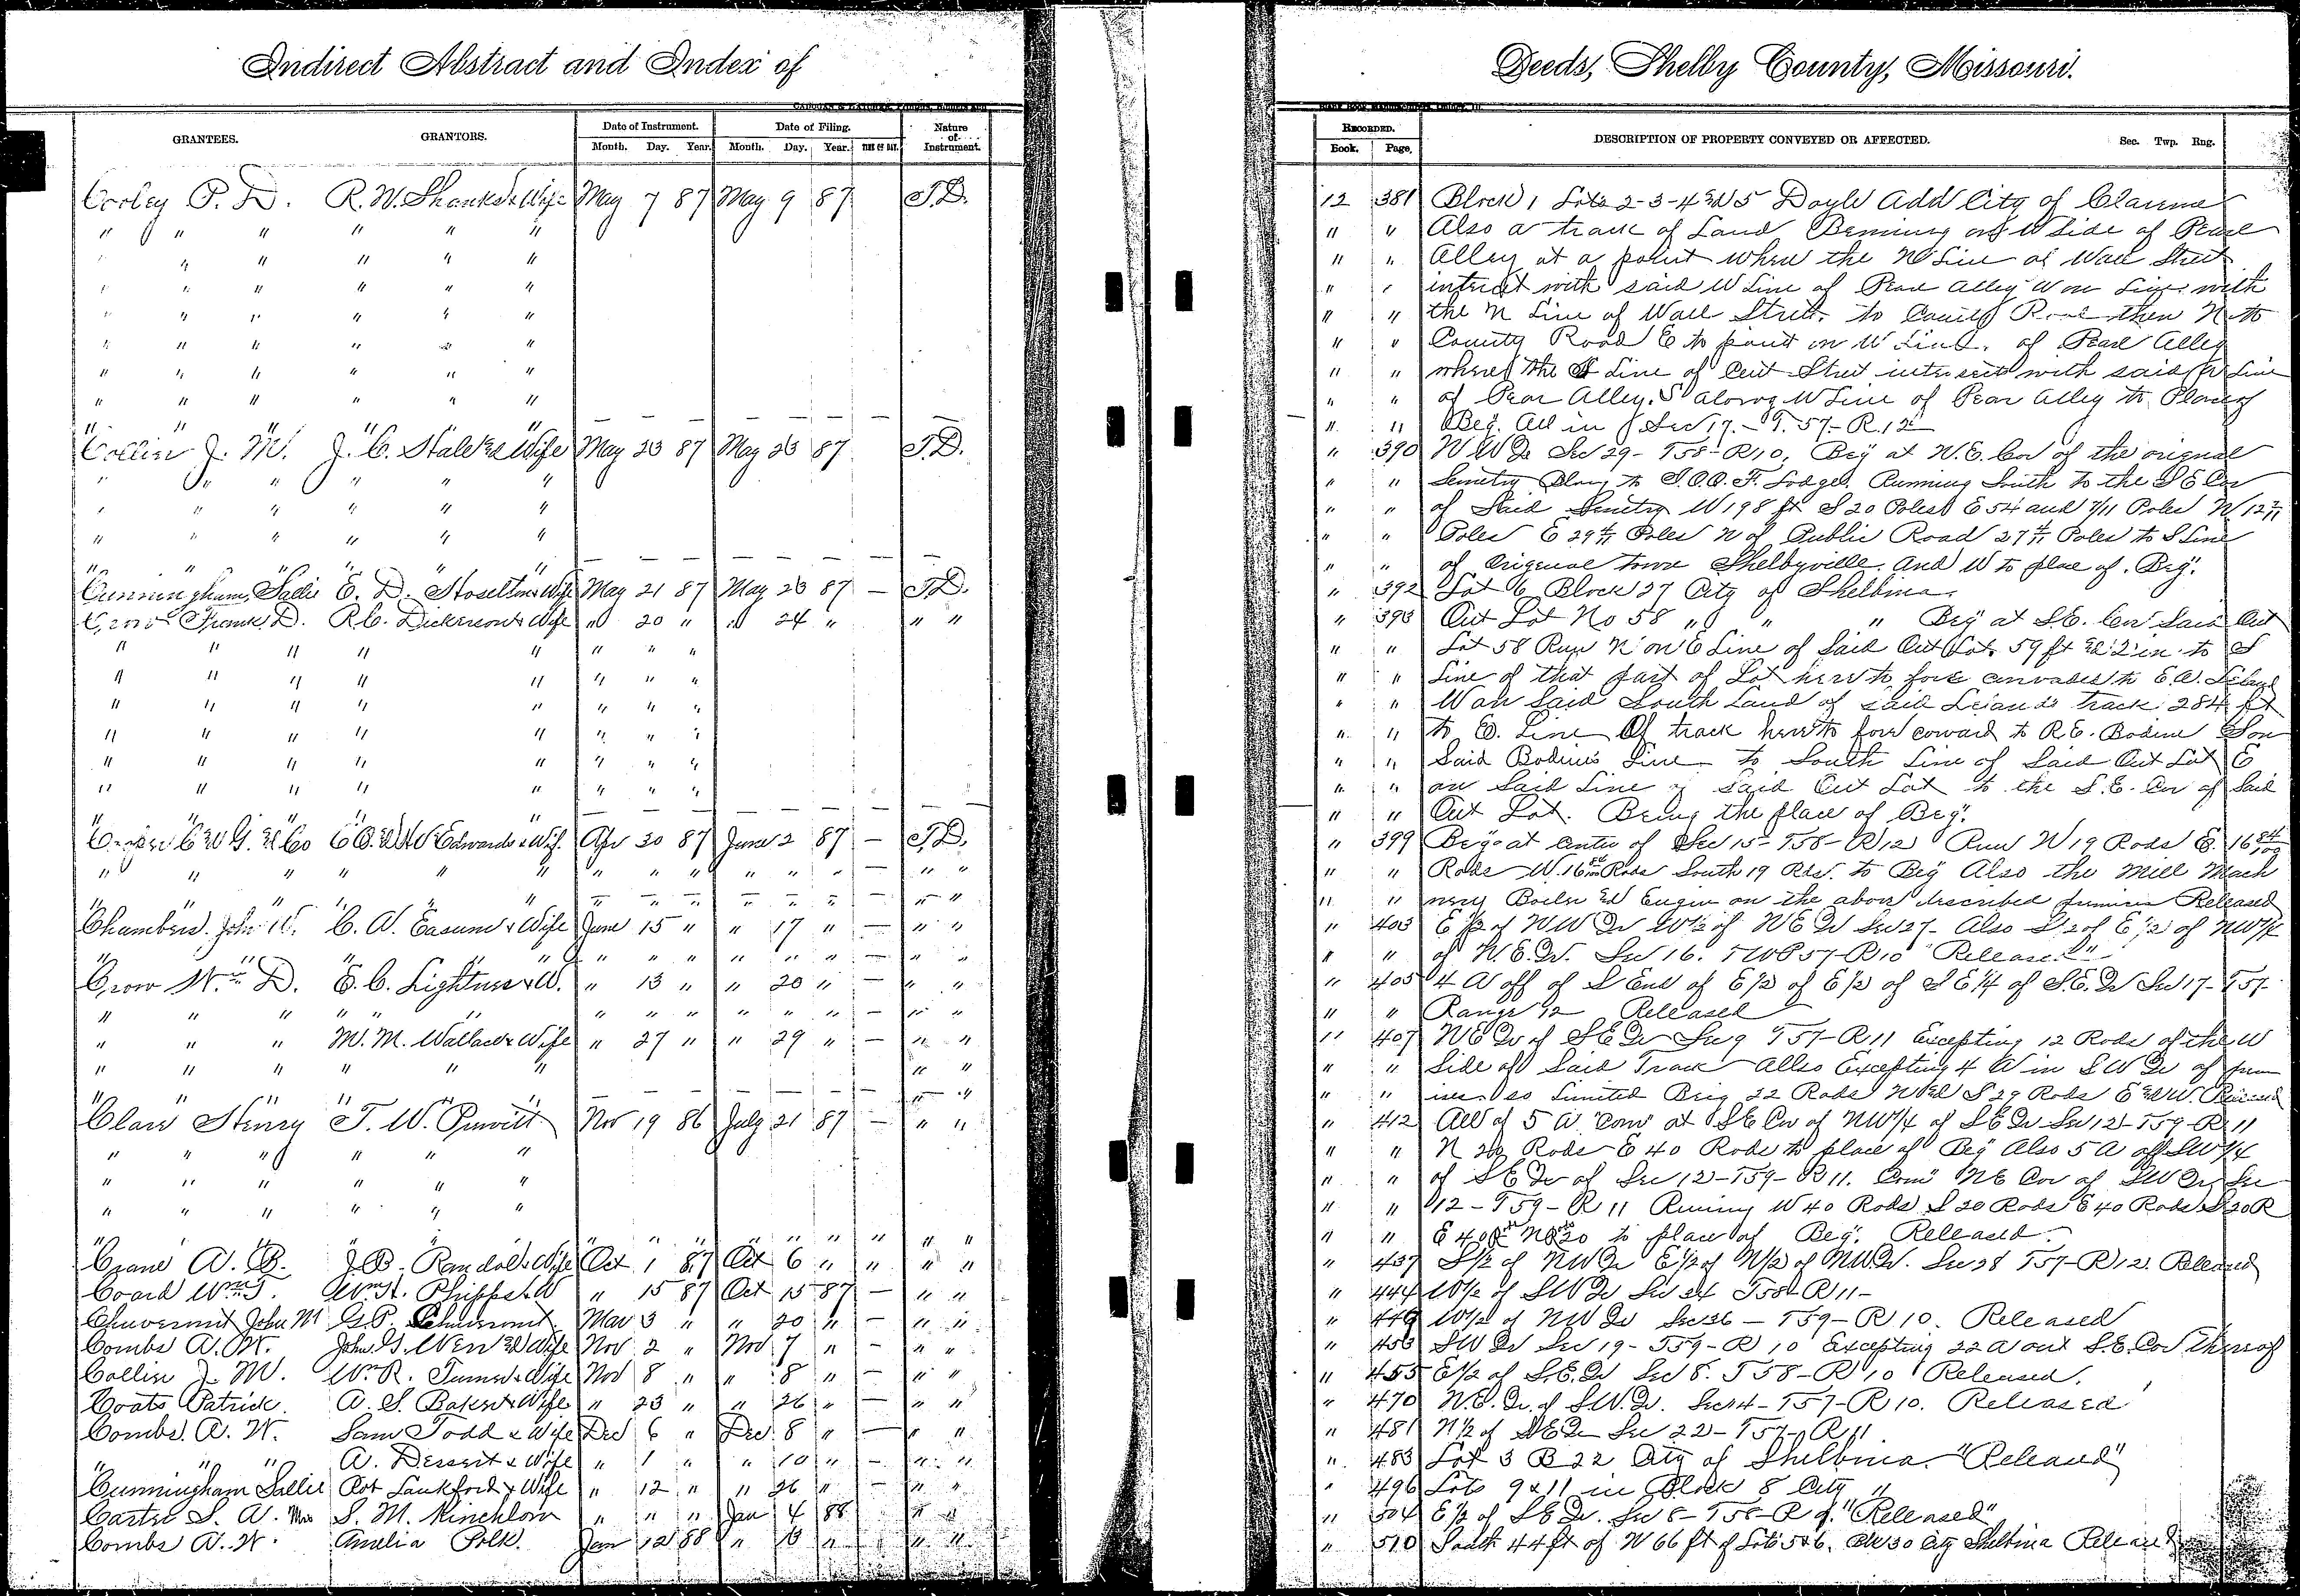 Indirect Abstract and Index of
Deeds, Shelby County, Missouri.
GRANTEES. GRANTORS. Date of Instrument. Month. Day. Year. Date of Filing. Month. Day. Year. TIME OF DAY. Nature of Instrument.
RECORDED. Book. Page. DESCRIPTION OF PROPERTY CONVEYED OR AFFECTED. Sec. Twp. Rng.
Corley P. D. R. W. Shanks & Wife May 7 87 May 9 87 T.D. 12 381 Block 1 Lots 2-3-4 and 5 Doyle Add City of Clarence
" " " " " " " " Also a track of Land Beming on W Side of Pearl
" " " " " " " Alley at a point where the N Line of Wall Street
" " " " " " " " intersect with said W Line of Pear Alley W on Line with
" " " " " " " " the N Line of Wall Street to County Road then N to
" " " " " " " " County Road E to point on W Line of Pearl Alley
" " " " " " " " where the Line of Cent Street intersects with said W Line
" " " " " " " " of Pear Alley. S along W Line of Pear Alley to Place of
" " " " " " " " Beg. All in Sec 17.- T. 57- R. 12
Collier J. M. J. C. Stalke & Wife May 23 87 May 23 87 T.D. " 390 N W Qr Sec 29- T58- R10, Beg at N.E. Cor of the orignal
" " " " " " " " Semetry to I.O.O.F. Lodge. Running South to the S E Cor
" " " " " " " " of Said Semetry W 198 ft S 20 Poles E 54 and 7/11 Poles N 12
" " " " " " " " Poles E 29 Poles N of Public Road 27 Poles to S Line
" " " " " " " " of Origenal town Shelbyville. and W to place of. Beg.
Cunningham, Sallie E. D. Hoselton & Wife May 21 87 May 23 87 — T.D. " 392 Lot 6 Block 27 City of Shelbina.
Frank D. R. C. Dickerson & Wife " 20 " " 24 " " " " 393 Out Lot No 58 " " " Beg at S.E. Cor Said Out
" " " " " " " " " " Lot 58 Run N on E Line of Said Out Lot. 59 ft 2 in to S
" " " " " " " " " " Line of that part of Lot here to fore to E. A.
" " " " " " " " " " W on Said South Land of said track 284 ft
" " " " " " " " " " to E. Line Of track here to fore to R. E. Bodine S on
" " " " " " " " " " Said Bodine's Line to South Line of Said Out Lot E
" " " " " " " " " " on Said Line of Said Out Lot to the S. E. Cor of Said
" " " " " " " Out Lot. Being the place of Beg.
C W G. & Co Edwards & Wife Apr 30 87 June 2 87 — T.D. " 399 Beg at center of Sec 15- T58- R12 Run N 19 Rods E. 16 84/100
" " " " " " " " " " " " — " " " " Rods W. 16 Rods South 19 Rds. to Beg Also the Mill Mach
" " " " " " " " " " " " — " " " " nery Boiler and Engin on the above described Released
Chambers John W. C. A. Easum & Wife June 15 " " 17 " — " " " 403 E 1/2 of N W Qr W 1/2 of N E Qr Sec 27- Also of E 1/2 of NW 1/4
" " " " " " " " " " " " — " " " " of N. E. Qr. Sec 16. TWP 57- R 10 Released
Crow Wm D. E. C. Lightner & W. " 13 " " 20 " — " " " 405 4 A off of S End of E 1/2 of E 1/2 of S E 1/4 of S. E. Qr Sec 17- T57-
" " " " " " " " " " " " — " " " " Range 12 Released
" " " M. M. Wallace & Wife " 27 " " 29 " — " " " 407 N E Qr of S E Qr Sec 9 T57- R 11 Excepting 12 Rods of the W
" " " " " " " " " " Side of Said Track Allso Excepting 4 A in S W Qr of
" " " " " — " " " " Limited Beig 22 Rods N & S 29 Rods E & W. Released
Clare Henry T. W. Pruvitt Nov 19 86 July 21 87 — " " " 412 All of 5 A Com at S E Cor of NW 1/4 of S E Qr Sec 12- T59- R 11
" " " " " " " " N 20 Rods E 40 Rods to place of Beg Also 5 A off SW 1/4
" " " " " " " " of S E Qr of Sec 12- T59- R 11. Com N E Cor of S W Qr Sec
" " " " " " " " 12- T59- R 11 Runing W 40 Rods S 20 Rods E 40 Rods S 20 R
" " " " " " " " " " " " " " " " to place of Beg. Released
Crane A. B. J. B. Randol & Wife Oct 1 87 Oct 6 " " " " " 437 S 1/2 of N W Qr E 1/2 of N 1/2 of N.W. Qr. Sec 28 T57- R 12. Released
Coard Wm T. Wm H. Phipps & W " 15 87 Oct 15 87 — " " " 444 W 1/2 of S W Qr Sec 34 T58- R 11-
Chuvermit John M G. P. Chuvermit Mar 3 " " 20 " — " " " 446 W 1/2 of N W Qr Sec 36 — T59- R 10. Released
Combs A. W. John G. & Wife Nov 2 " Nov 7 " - " " " 453 S W Qr Sec 19- T59- R 10 Excepting 22 A out S. E. Cor Thereof
Collier J. M. Wm R. Turner & Wife Nov 8 " " 8 " — " " " 455 E 1/2 of S. E. Qr Sec 8. T58- R 10 Released.
Coats Patrick A. S. Baker & Wife " 23 " " 26 " — " " " 470 N. E. Qr. of S. W. Qr. Sec 4- T57- R 10. Released
Combs. A. W. Sam Todd & Wife Dec 6 " Dec 8 " — " " " 481 N 1/2 of S E Qr Sec 22- T57- R 11
" " " A. Dessert & Wife " 1 " " 10 " - " " " 483 Lot 3 B 22 City of Shelbina "Released"
Cunningham Sallie Rot Lankford & Wife " 12 " " 26 " — " " " 496 Lots 9 & 11 in Block 8 City "
Carter S. A. Mrs S. M. Kinchlow " " " Jan 4 88 " " " 504 E 1/2 of S E Qr. Sec 8- T58- R 9. "Released"
Combs A. W. Amelia Polk. Jan 12 88 " 13 " " " " 510 South 44 ft of W 66 ft of Lots 5 & 6. Blk 30 City Shelbina Released